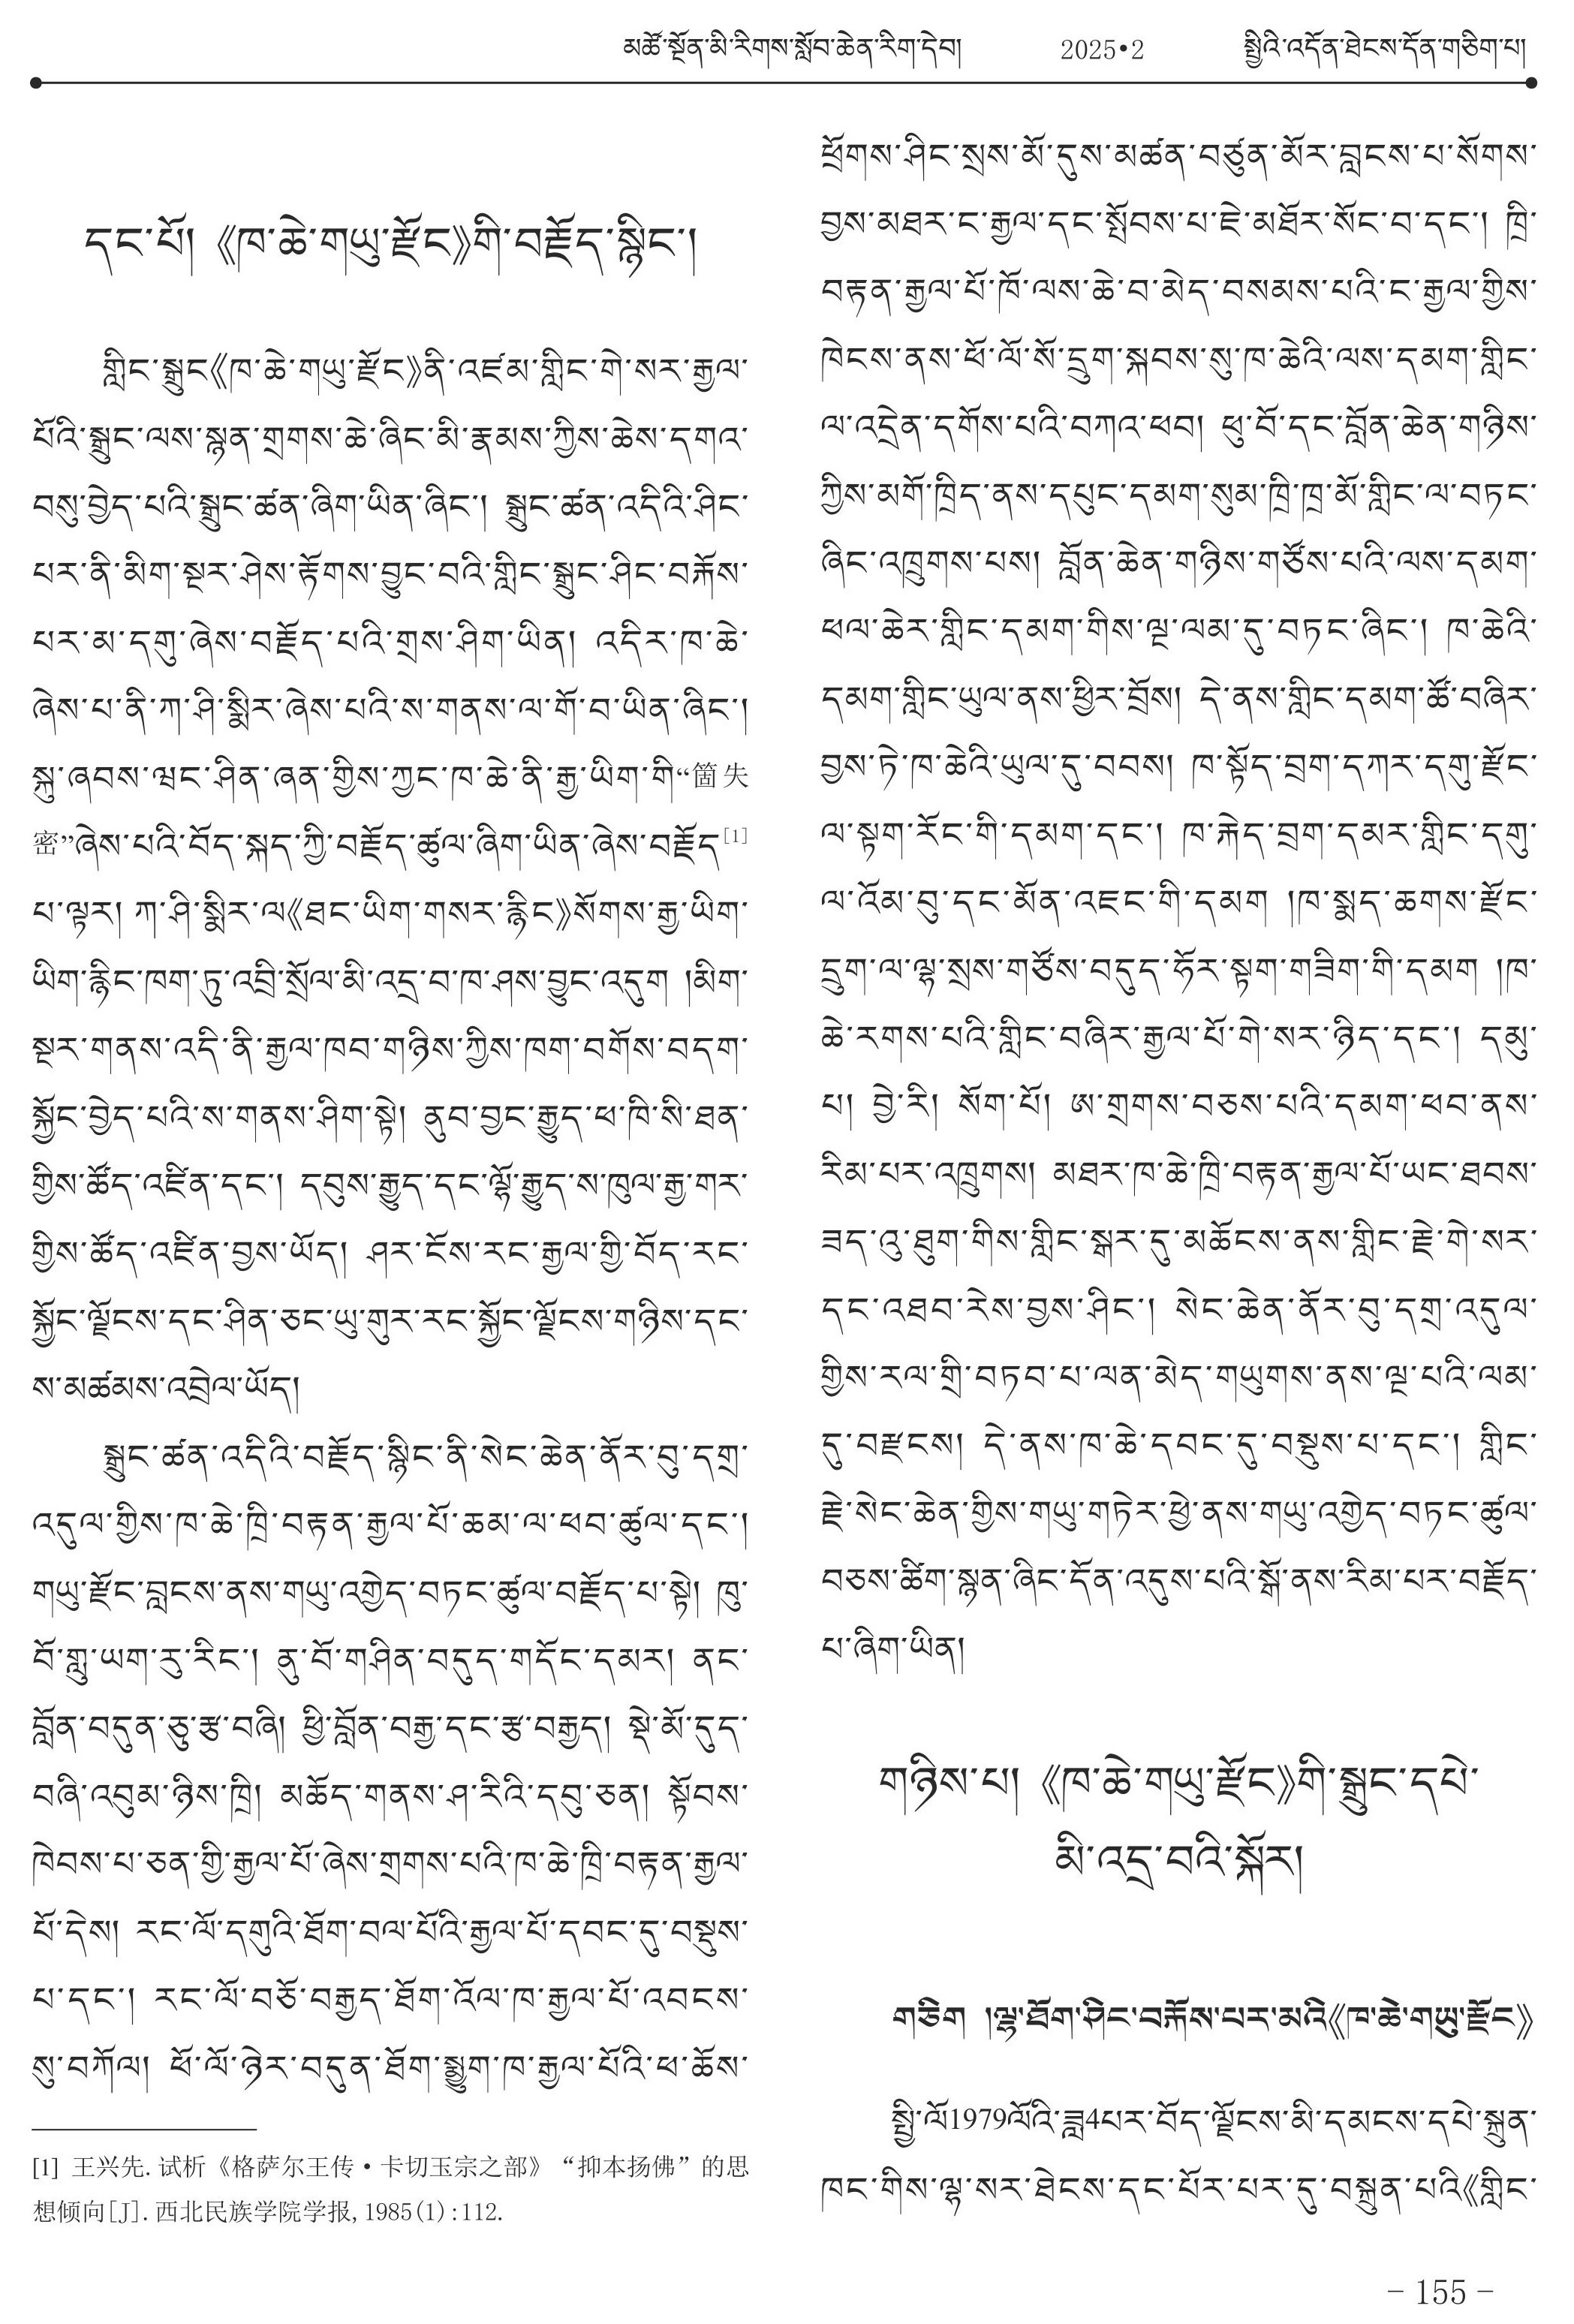 མཚོ་སྔོན་མི་རིགས་སློབ་ཆེན་རིག་དེབ། 2025•2 སྤྱིའི་འདོན་ཐེངས་དོན་གཅིག་པ།
དང་པོ། 《ཁ་ཆེ་གཡུ་རྫོང》གི་བརྗོད་སྙིང་།
གླིང་སྒྲུང《ཁ་ཆེ་གཡུ་རྫོང》ནི་འཛམ་གླིང་གེ་སར་རྒྱལ་
པོའི་སྒྲུང་ལས་སྙན་གྲགས་ཆེ་ཞིང་མི་རྣམས་ཀྱིས་ཆེས་དགའ་
བསུ་བྱེད་པའི་སྒྲུང་ཚན་ཞིག་ཡིན་ཞིང་། སྒྲུང་ཚན་འདིའི་ཤིང་
པར་ནི་མིག་སྔར་ཤེས་རྟོགས་བྱུང་བའི་གླིང་སྒྲུང་ཤིང་བརྐོས་
པར་མ་དགུ་ཞེས་བརྗོད་པའི་གྲས་ཤིག་ཡིན། འདིར་ཁ་ཆེ་
ཞེས་པ་ནི་ཀ་ཤི་སྨིར་ཞེས་པའི་ས་གནས་ལ་གོ་བ་ཡིན་ཞིང་།
སྐུ་ཞབས་ཝང་ཤིན་ཞན་གྱིས་ཀྱང་ཁ་ཆེ་ནི་རྒྱ་ཡིག་གི“箇失
密”ཞེས་པའི་བོད་སྐད་ཀྱི་བརྗོད་ཚུལ་ཞིག་ཡིན་ཞེས་བརྗོད[1]
པ་ལྟར། ཀ་ཤི་སྨིར་ལ《ཐང་ཡིག་གསར་རྙིང》སོགས་རྒྱ་ཡིག་
ཡིག་རྙིང་ཁག་ཏུ་འབྲི་སྲོལ་མི་འདྲ་བ་ཁ་ཤས་བྱུང་འདུག །མིག་
སྔར་གནས་འདི་ནི་རྒྱལ་ཁབ་གཉིས་ཀྱིས་ཁག་བགོས་བདག་
སྐྱོང་བྱེད་པའི་ས་གནས་ཤིག་སྟེ། ནུབ་བྱང་རྒྱུད་ཕ་ཁི་སི་ཐན་
གྱིས་ཚོད་འཛིན་དང་། དབུས་རྒྱུད་དང་ལྷོ་རྒྱུད་ས་ཁུལ་རྒྱ་གར་
གྱིས་ཚོད་འཛིན་བྱས་ཡོད། ཤར་ངོས་རང་རྒྱལ་གྱི་བོད་རང་
སྐྱོང་ལྗོངས་དང་ཤིན་ཅང་ཡུ་གུར་རང་སྐྱོང་ལྗོངས་གཉིས་དང་
ས་མཚམས་འབྲེལ་ཡོད།
སྒྲུང་ཚན་འདིའི་བརྗོད་སྙིང་ནི་སེང་ཆེན་ནོར་བུ་དགྲ་
འདུལ་གྱིས་ཁ་ཆེ་ཁྲི་བརྟན་རྒྱལ་པོ་ཆམ་ལ་ཕབ་ཚུལ་དང་།
གཡུ་རྫོང་བླངས་ནས་གཡུ་འགྱེད་བཏང་ཚུལ་བརྗོད་པ་སྟེ། ཁུ་
བོ་གླུ་ཡག་རུ་རིང་། ནུ་བོ་གཤིན་བདུད་གདོང་དམར། ནང་
བློན་བདུན་ཅུ་རྩ་བཞི། ཕྱི་བློན་བརྒྱ་དང་རྩ་བརྒྱད། སྡེ་མོ་དུད་
བཞི་འབུམ་ཉིས་ཁྲི། མཆོད་གནས་ཤ་རིའི་དབུ་ཅན། སྟོབས་
ཁེབས་པ་ཅན་གྱི་རྒྱལ་པོ་ཞེས་གྲགས་པའི་ཁ་ཆེ་ཁྲི་བརྟན་རྒྱལ་
པོ་དེས། རང་ལོ་དགུའི་ཐོག་བལ་པོའི་རྒྱལ་པོ་དབང་དུ་བསྡུས་
པ་དང་། རང་ལོ་བཅོ་བརྒྱད་ཐོག་འོལ་ཁ་རྒྱལ་པོ་འབངས་
སུ་བཀོལ། ཕོ་ལོ་ཉེར་བདུན་ཐོག་སྨྱུག་ཁ་རྒྱལ་པོའི་ཕ་ཆོས་
[1] 王兴先. 试析《格萨尔王传·卡切玉宗之部》“抑本扬佛”的思
想倾向[J]. 西北民族学院学报, 1985(1):112.
ཕྲོགས་ཤིང་སྲས་མོ་དུས་མཚན་བཙུན་མོར་བླངས་པ་སོགས་
བྱས་མཐར་ང་རྒྱལ་དང་སྤོབས་པ་ཇེ་མཐོར་སོང་བ་དང་། ཁྲི་
བརྟན་རྒྱལ་པོ་ཁོ་ལས་ཆེ་བ་མེད་བསམས་པའི་ང་རྒྱལ་གྱིས་
ཁེངས་ནས་ཕོ་ལོ་སོ་དྲུག་སྐབས་སུ་ཁ་ཆེའི་ལས་དམག་གླིང་
ལ་འདྲེན་དགོས་པའི་བཀའ་ཕབ། ཕུ་བོ་དང་བློན་ཆེན་གཉིས་
ཀྱིས་མགོ་ཁྲིད་ནས་དཔུང་དམག་སུམ་ཁྲི་ཁྲ་མོ་གླིང་ལ་བཏང་
ཞིང་འཁྲུགས་པས། བློན་ཆེན་གཉིས་གཙོས་པའི་ལས་དམག་
ཕལ་ཆེར་གླིང་དམག་གིས་ལྔ་ལམ་དུ་བཏང་ཞིང་། ཁ་ཆེའི་
དམག་གླིང་ཡུལ་ནས་ཕྱིར་བྲོས། དེ་ནས་གླིང་དམག་ཚོ་བཞིར་
བྱས་ཏེ་ཁ་ཆེའི་ཡུལ་དུ་བབས། ཁ་སྟོད་བྲག་དཀར་དགུ་རྫོང་
ལ་སྟག་རོང་གི་དམག་དང་། ཁ་རྐེད་བྲག་དམར་གླིང་དགུ་
ལ་འོམ་བུ་དང་མོན་འཇང་གི་དམག །ཁ་སྨད་ཆགས་རྫོང་
དྲུག་ལ་ལྷ་སྲས་གཙོས་བདུད་ཧོར་སྟག་གཟིག་གི་དམག །ཁ་
ཆེ་རགས་པའི་གླིང་བཞིར་རྒྱལ་པོ་གེ་སར་ཉིད་དང་། དམུ་
པ། བྱེ་རི། སོག་པོ། ཨ་གྲགས་བཅས་པའི་དམག་ཕབ་ནས་
རིམ་པར་འཁྲུགས། མཐར་ཁ་ཆེ་ཁྲི་བརྟན་རྒྱལ་པོ་ཡང་ཐབས་
ཟད་འུ་ཐུག་གིས་གླིང་སྒར་དུ་མཆོངས་ནས་གླིང་རྗེ་གེ་སར་
དང་འཐབ་རེས་བྱས་ཤིང་། སེང་ཆེན་ནོར་བུ་དགྲ་འདུལ་
གྱིས་རལ་གྲི་བཏབ་པ་ལན་མེད་གཡུགས་ནས་ལྔ་པའི་ལམ་
དུ་བརྫངས། དེ་ནས་ཁ་ཆེ་དབང་དུ་བསྡུས་པ་དང་། གླིང་
རྗེ་སེང་ཆེན་གྱིས་གཡུ་གཏེར་ཕྱེ་ནས་གཡུ་འགྱེད་བཏང་ཚུལ་
བཅས་ཚིག་སྙན་ཞིང་དོན་འདུས་པའི་སྒོ་ནས་རིམ་པར་བརྗོད་
པ་ཞིག་ཡིན།
གཉིས་པ། 《ཁ་ཆེ་གཡུ་རྫོང》གི་སྒྲུང་དཔེ་
མི་འདྲ་བའི་སྐོར།
གཅིག །ལྷ་ཐོག་ཤིང་བརྐོས་པར་མའི《ཁ་ཆེ་གཡུ་རྫོང》
སྤྱི་ལོ1979ལོའི་ཟླ4པར་བོད་ལྗོངས་མི་དམངས་དཔེ་སྐྲུན་
ཁང་གིས་ལྷ་སར་ཐེངས་དང་པོར་པར་དུ་བསྐྲུན་པའི《གླིང་
- 155 -